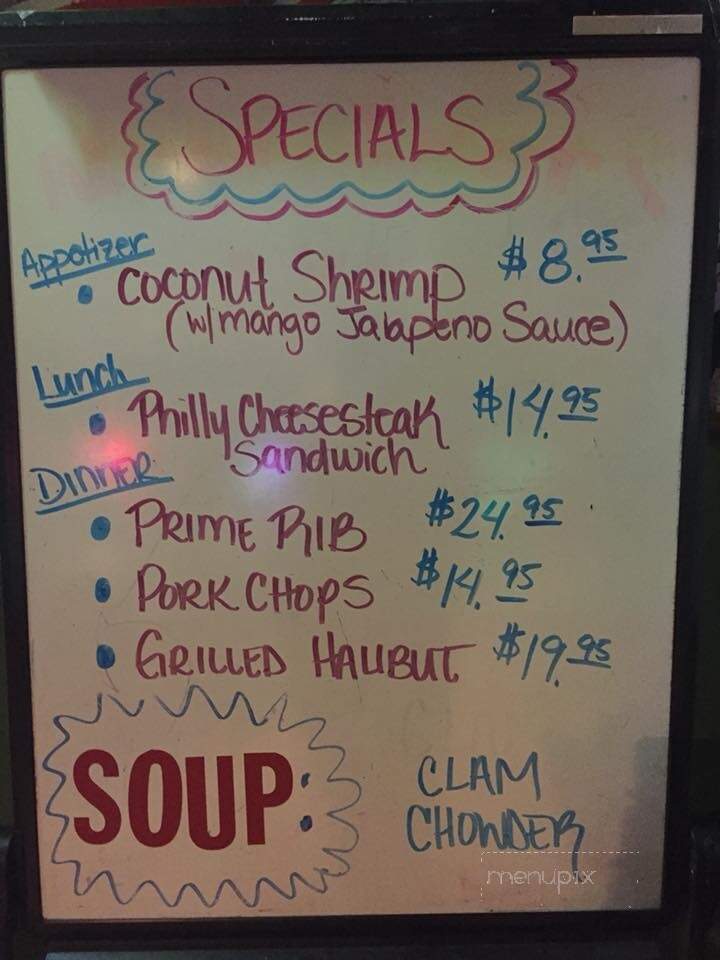 SPECIALS
Appetizer
• Coconut Shrimp $8.95
(w/mango Jalapeno Sauce)
Lunch
• Philly Cheesesteak $14.95
Sandwich
Dinner
• Prime Rib $24.95
• Pork Chops $14.95
• Grilled Halibut $19.95
SOUP: CLAM
CHOWDER
menupix